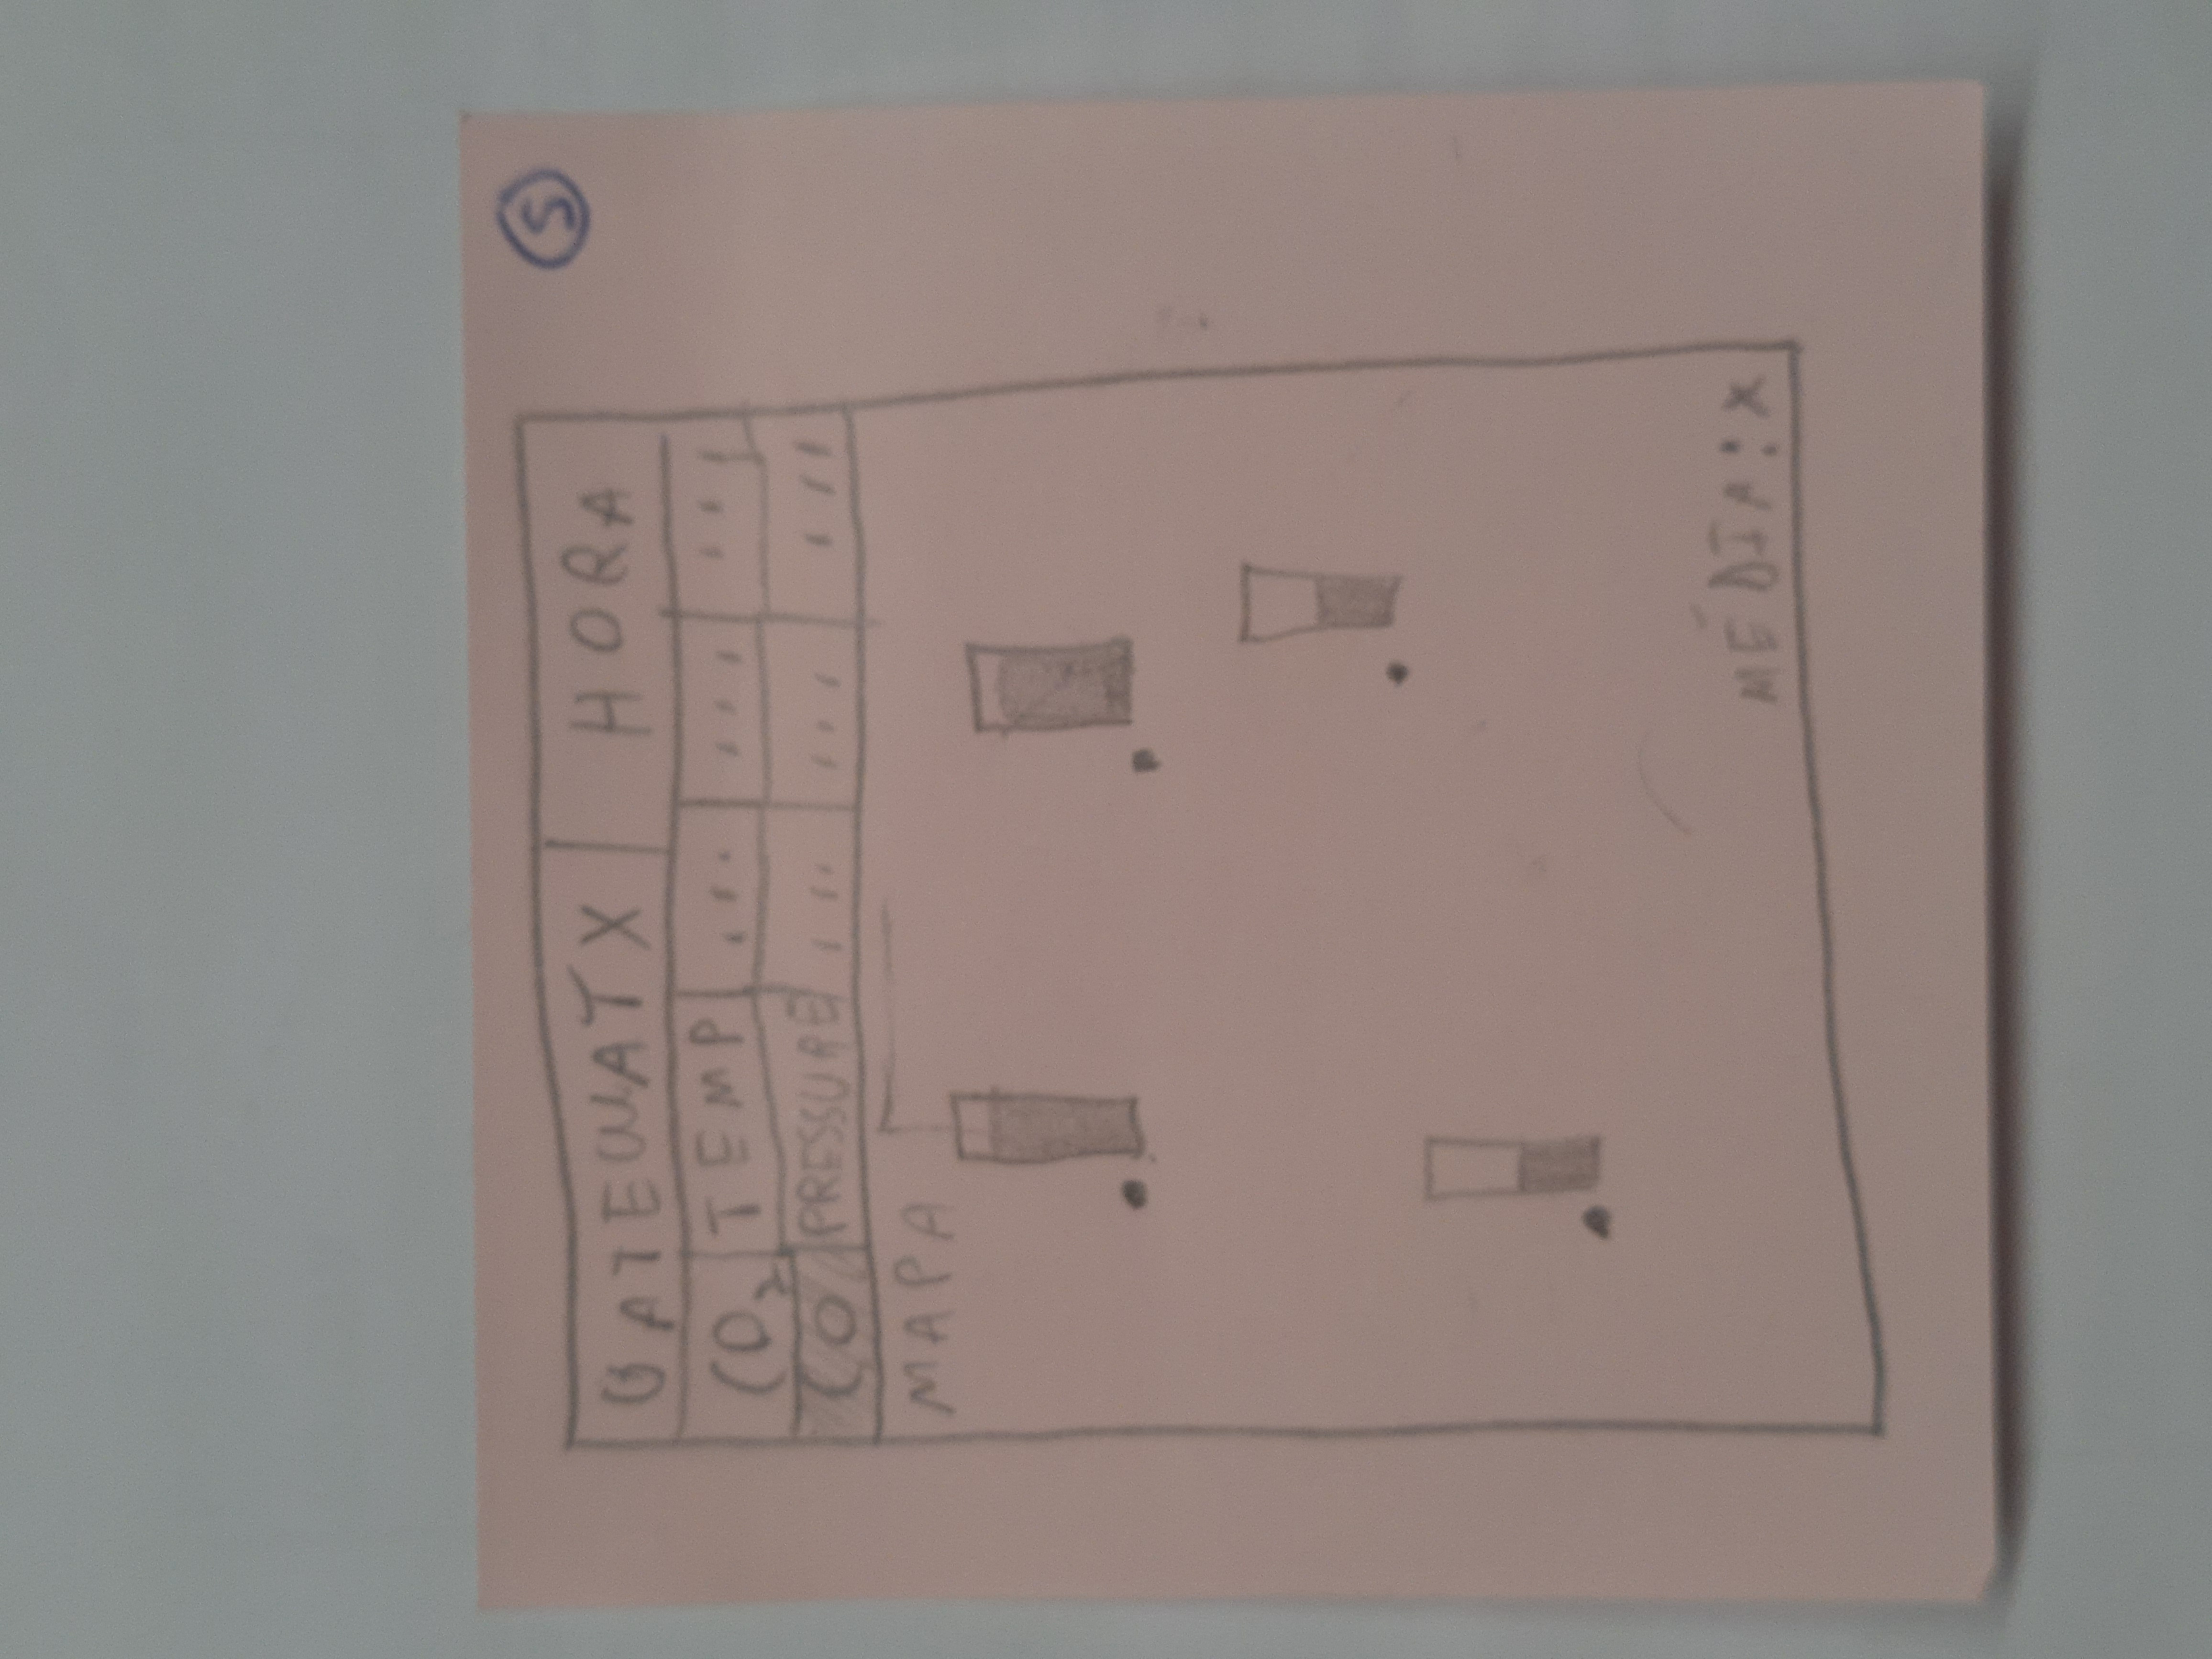 5
GATEWATX HORA
CO₂ TEMP ... ... ...
CO PRESSURE ... ... ...
MAPA
MÉDIA: X